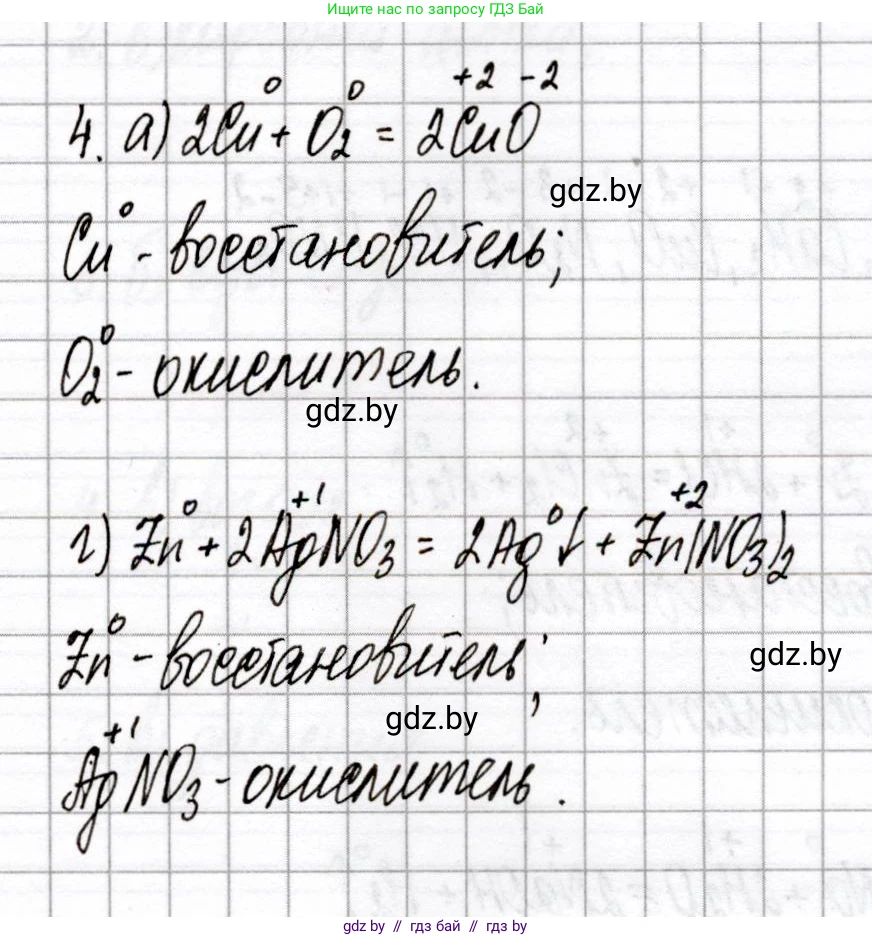 Ищите нас по запросу ГДЗ Бай
0 0 +2 -2
4. а) 2Cu + O2 = 2CuO
gdz.by
Cu⁰ - восстановитель;
O2⁰ - окислитель.
gdz.by
г) Zn⁰ + 2Ag⁺¹NO3 = 2Ag⁰↓ + Zn⁺²(NO3)2
Zn⁰ - восстановитель;
gdz.by
gdz.by
Ag⁺¹NO3 - окислитель.
gdz.by // гдз бай // gdz.by